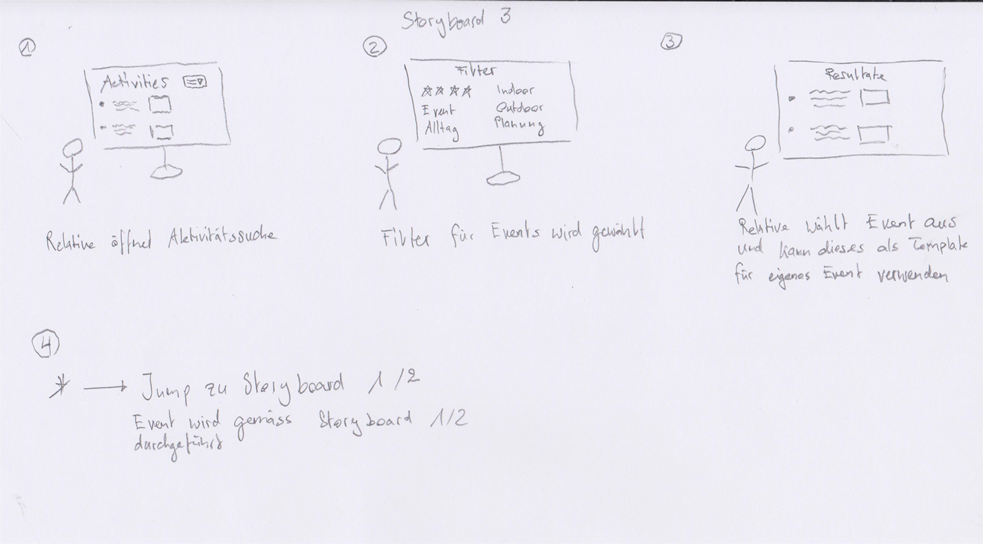 Storyboard 3
1
Activities
Relative öffnet Aktivitätssuche
2
Filter
Indoor
Event
Outdoor
Alltag
Planung
Filter für Events wird gewählt
3
Resultate
Relative wählt Event aus
und kann dieses als Template
für eigenes Event verwenden
4
* → Jump zu Storyboard 1/2
Event wird gemäss Storyboard 1/2
durchgeführt